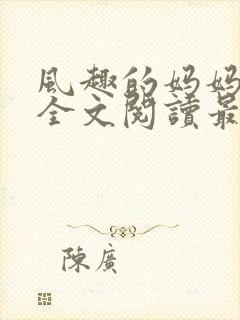 風趣的妈妈
全文閱讀最
陳廣